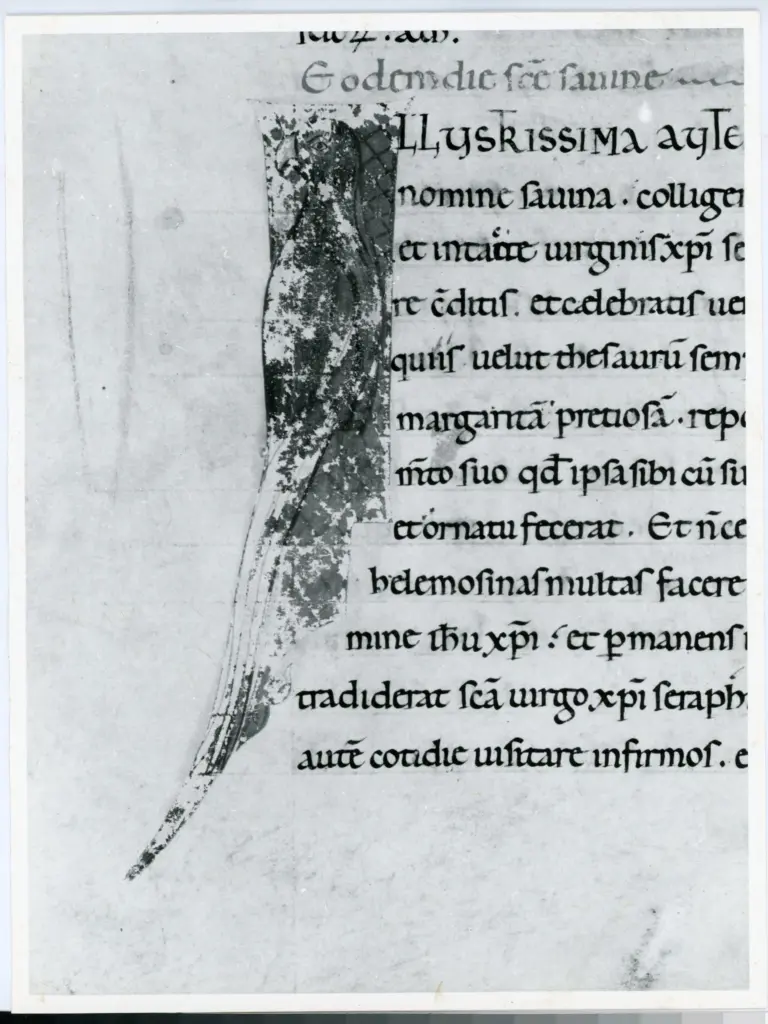 Eodem die scē sauine
ILLUSTRISSIMA AUTE
nomine sauina. colliger
et intacte uirginis xp̄i se
re c̄ditis. et celebratis uen
quiis uelut thesaurū sem
margaritā pretiosā. repo
m̄to suo qđ ipsa sibi cū su
et ornatu fecerat. Et n̄ ce
bat elemosinas multas facere
mine ih̄u xp̄i: et ꝑmanens i
tradiderat scā uirgo xp̄i seraph
autē cotidie uisitare infirmos. e